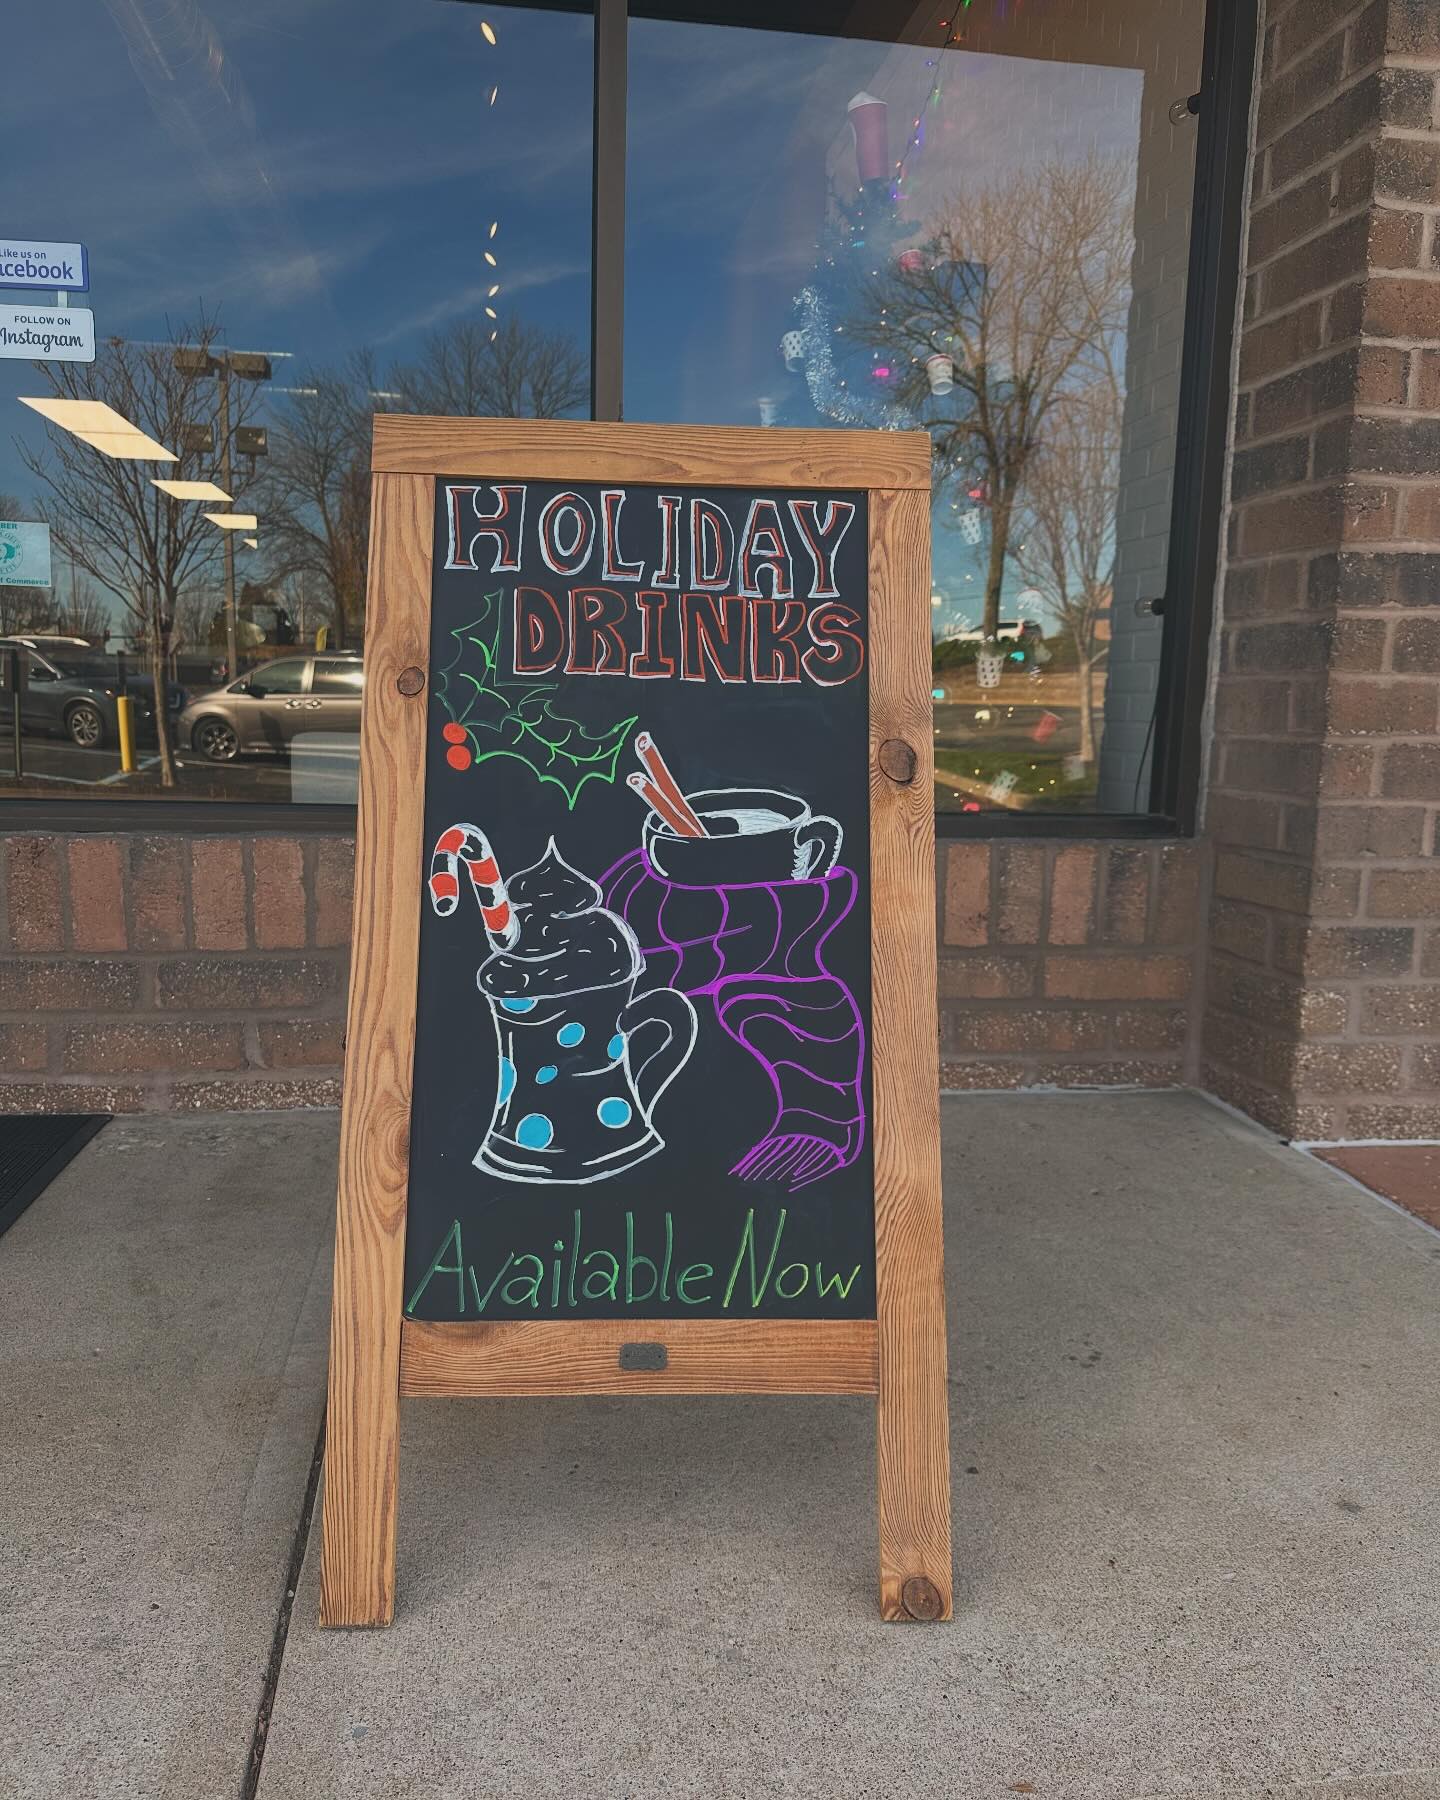 Like us on
acebook
FOLLOW ON
Instagram
BER
f Commerce
HOLIDAY
DRINKS
Available Now